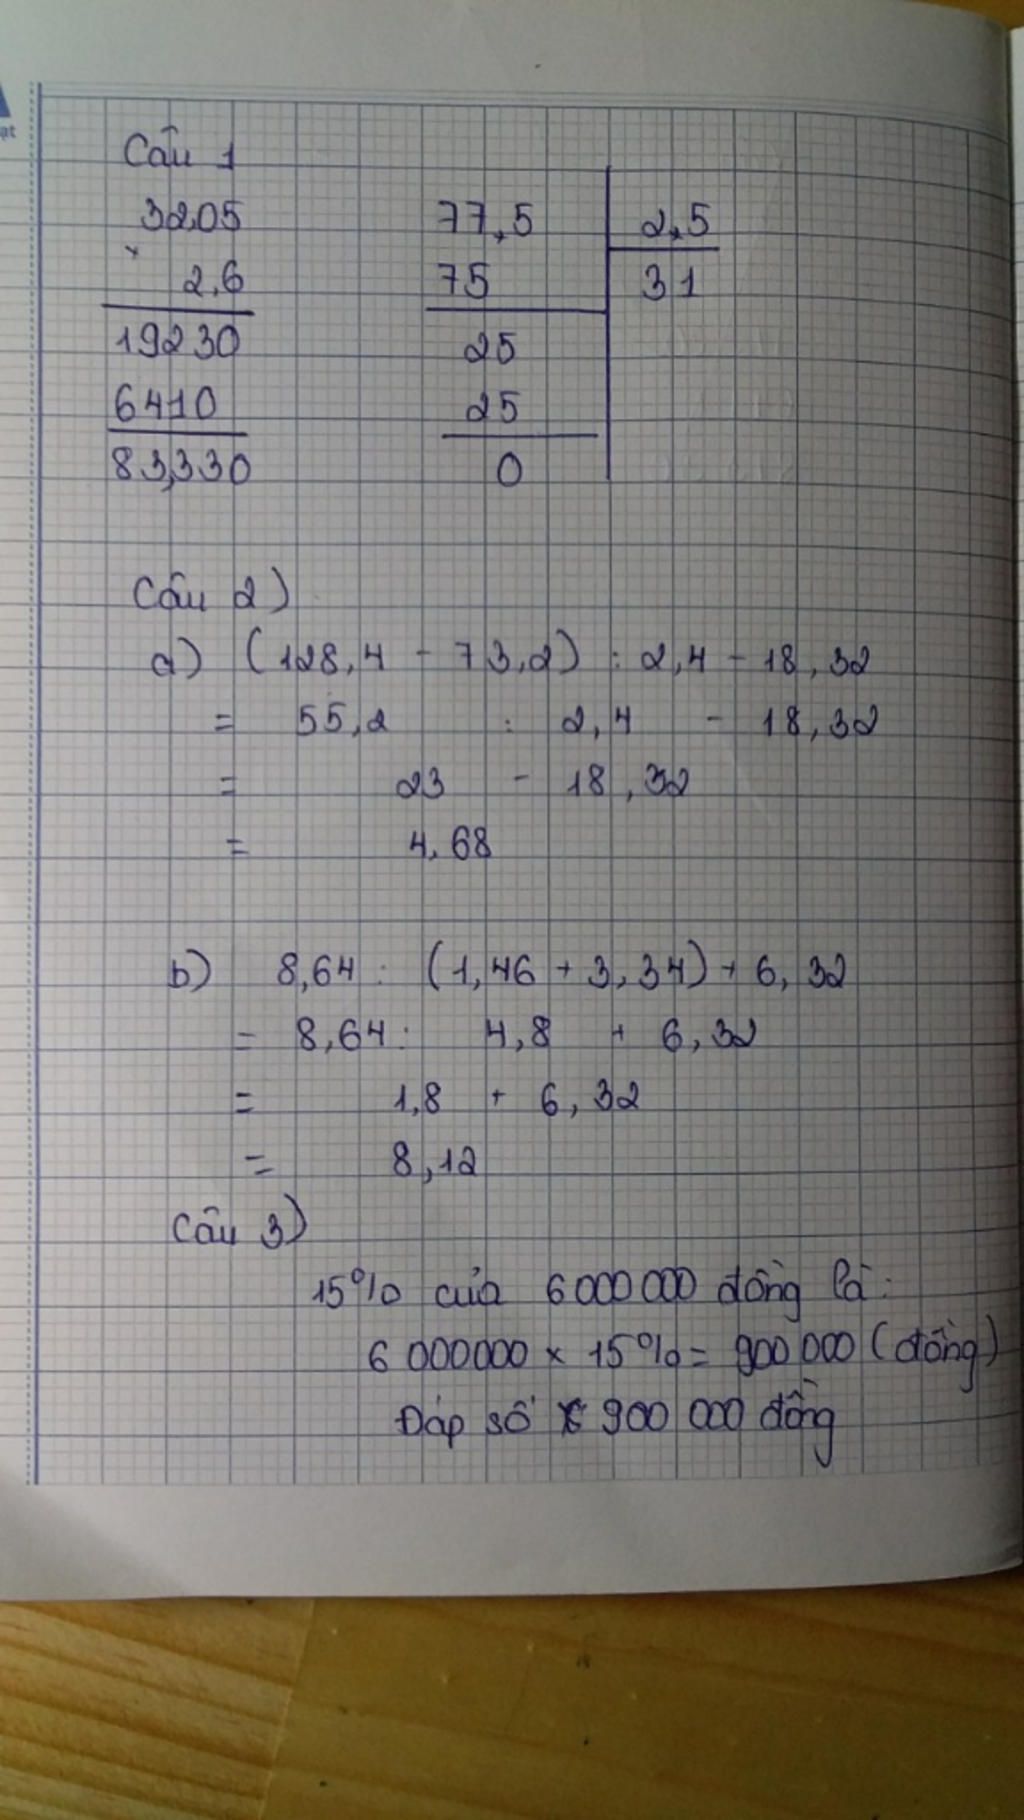 ạt
Câu 1
3205
×
2,6
19230
6410
83,330
77,5 2,5
75 31
25
25
0
Câu 2)
a) (128,4 - 73,2) : 2,4 - 18,32
= 55,2 : 2,4 - 18,32
= 23 - 18,32
= 4,68
b) 8,64 : (1,46 + 3,34) + 6,32
= 8,64 : 4,8 + 6,32
= 1,8 + 6,32
= 8,12
Câu 3)
15% của 6000000 đồng là :
6 000000 × 15% = 900 000 (đồng)
Đáp số 900 000 đồng